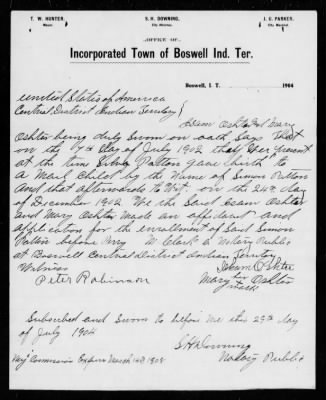 T. W. HUNTER, S. H. DOWNING, J. G. PARKER,
Mayor City Recorder City Marshal
OFFICE OF
Incorporated Town of Boswell Ind. Ter.
Boswell, I. T. 1904
United States of America
Central District Indian Territory }
Isom Oshter and Mary
Oshter being duly Sworn on oath Says That
on the 7th day of July 1902 that they were present
at the time Patton gave birth to
a Mail Child by the Name of Simon Patton
and that afterwards to Wit, on the 24th day
of December 1902 We the Said Isom Oshter
and Mary Oshter Made an affidavit and
application for the enrollment of Said Simon
Patton before M. Clark a Notary Public
at Boswell Central District Indian Territory
Witness Isom Oshter
Peter Robinson Mary her Oshter
mark
Subscribed and Sworn to before Me this 29th day
of July 1904
S H Downing
My Commission Expires March 1908 Notary Public